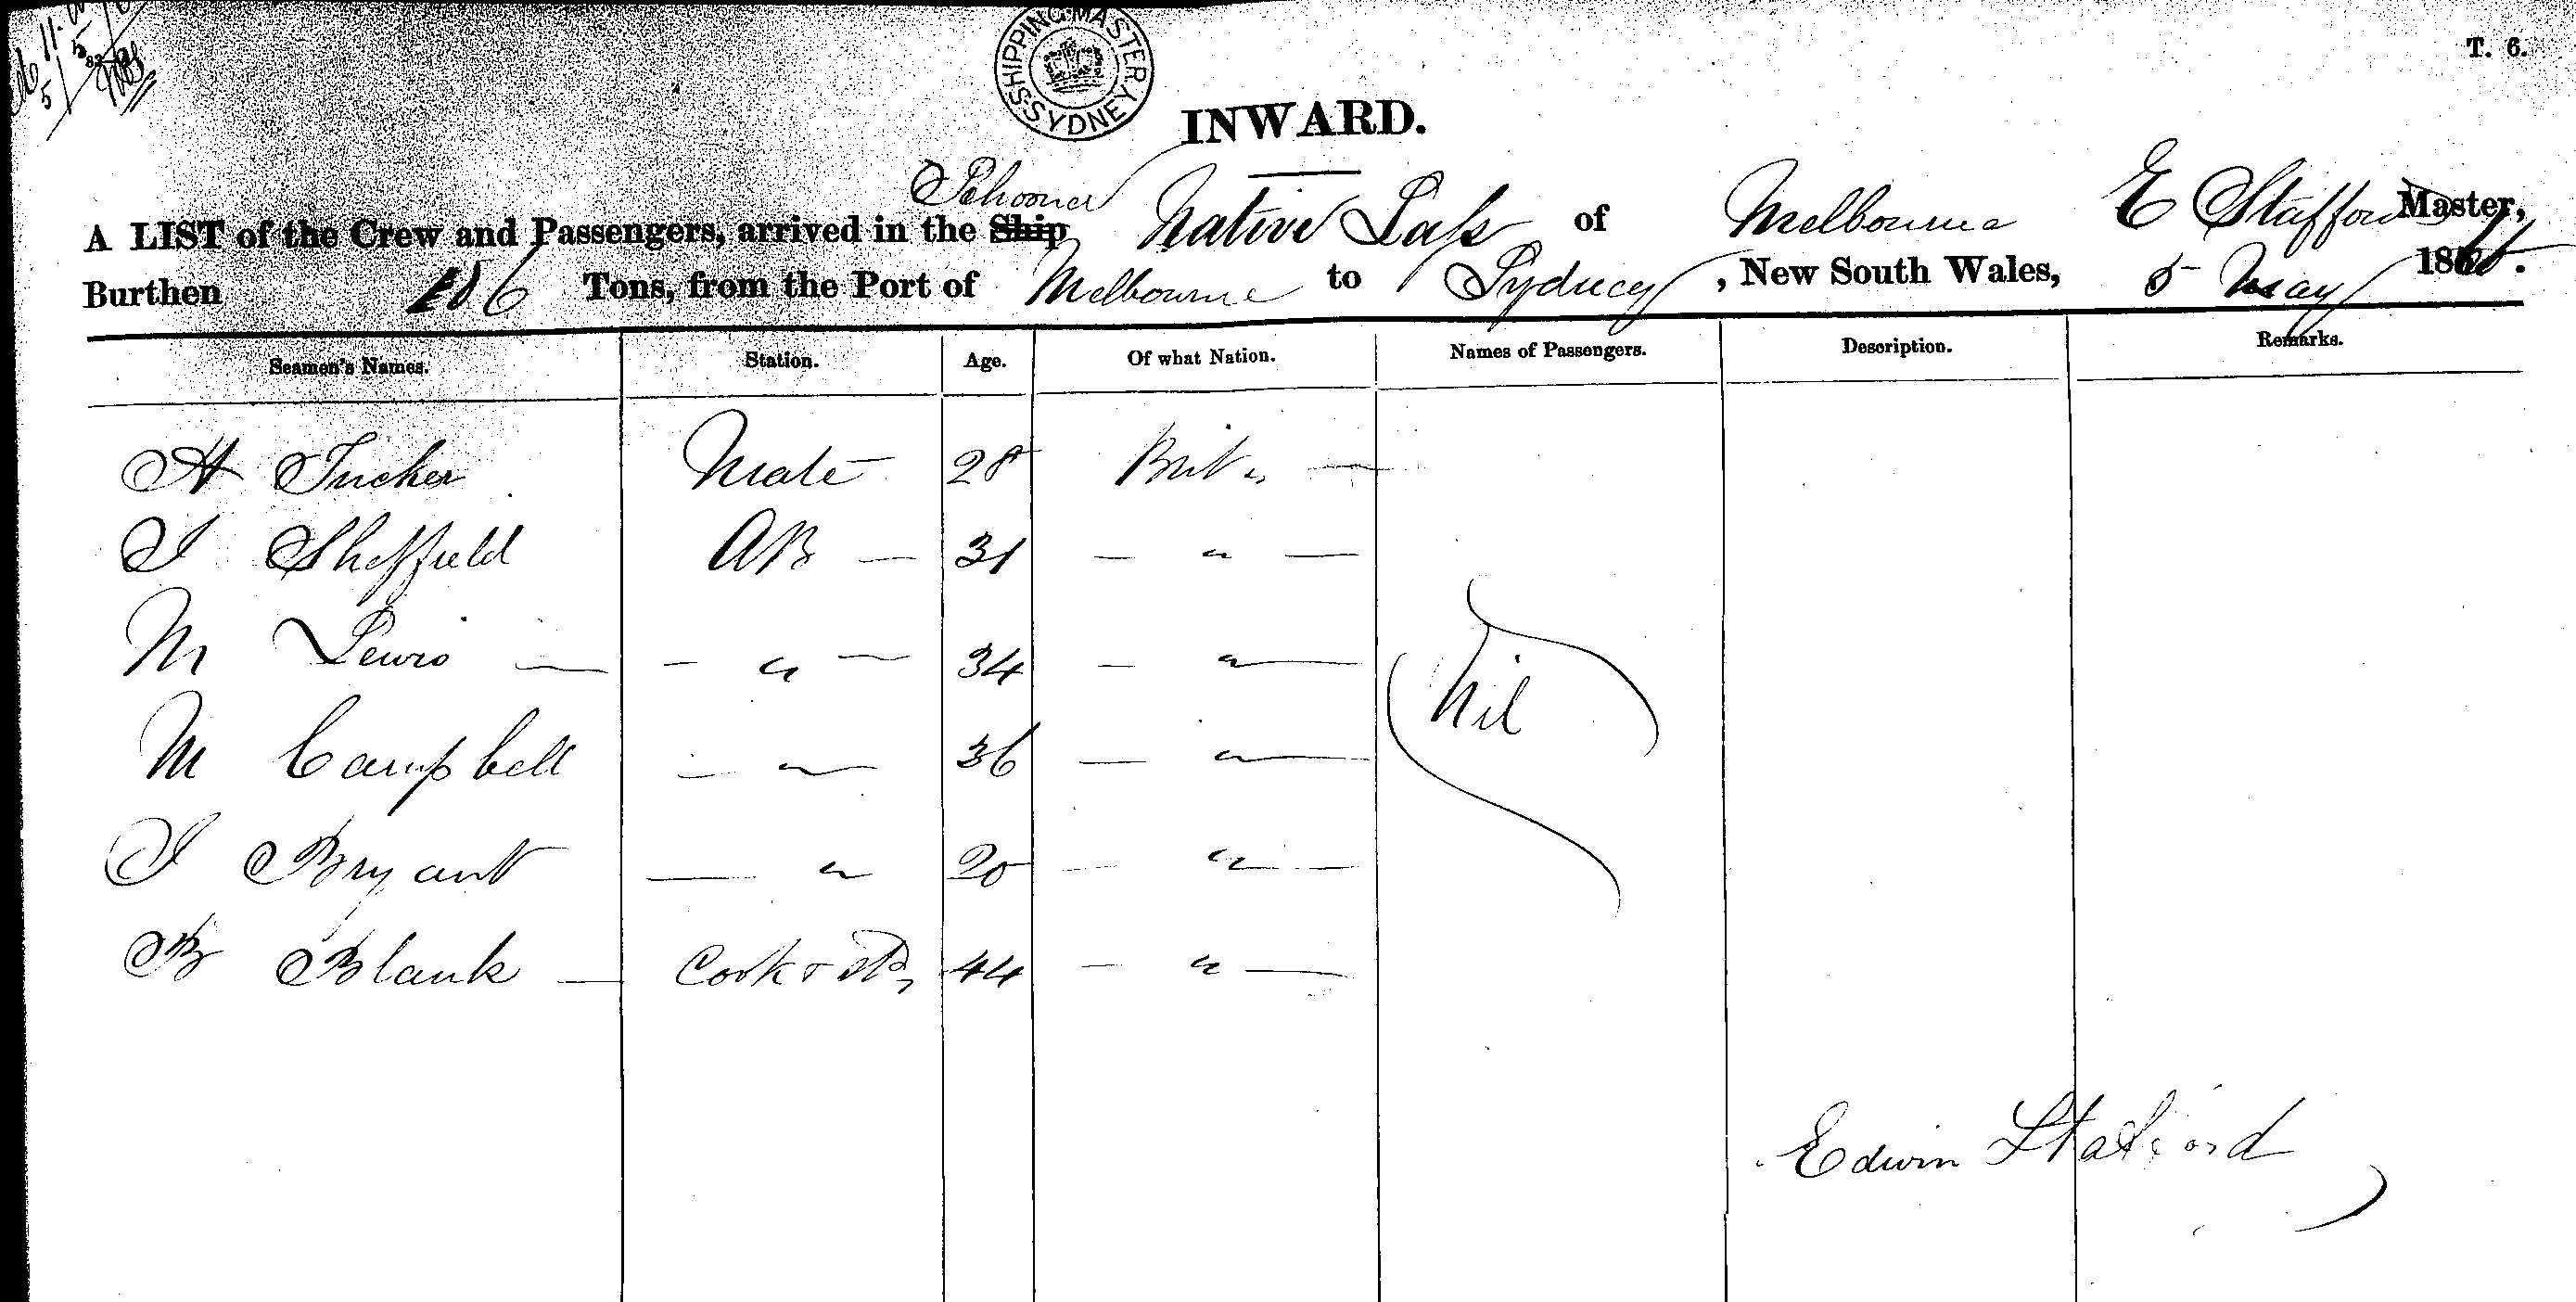 T. 6.
SHIPPING MASTER SYDNEY
INWARD.
A LIST of the Crew and Passengers, arrived in the Ship Schooner Native Lass of Melbourne E Stafford Master,
Burthen 106 Tons, from the Port of Melbourne to Sydney, New South Wales, 5 May 186
Seamen's Names. Station. Age. Of what Nation. Names of Passengers. Description. Remarks.
H Tucker Mate 28 Brit "
J Sheffield AB — 31 — " —
M Lewis — — " — 34 — " —
M Campbell — " — 36 — " —
Nil
J Bryant — " 20 — " —
B Blank — Cook & Std, 44 — " —
Edwin Stafford